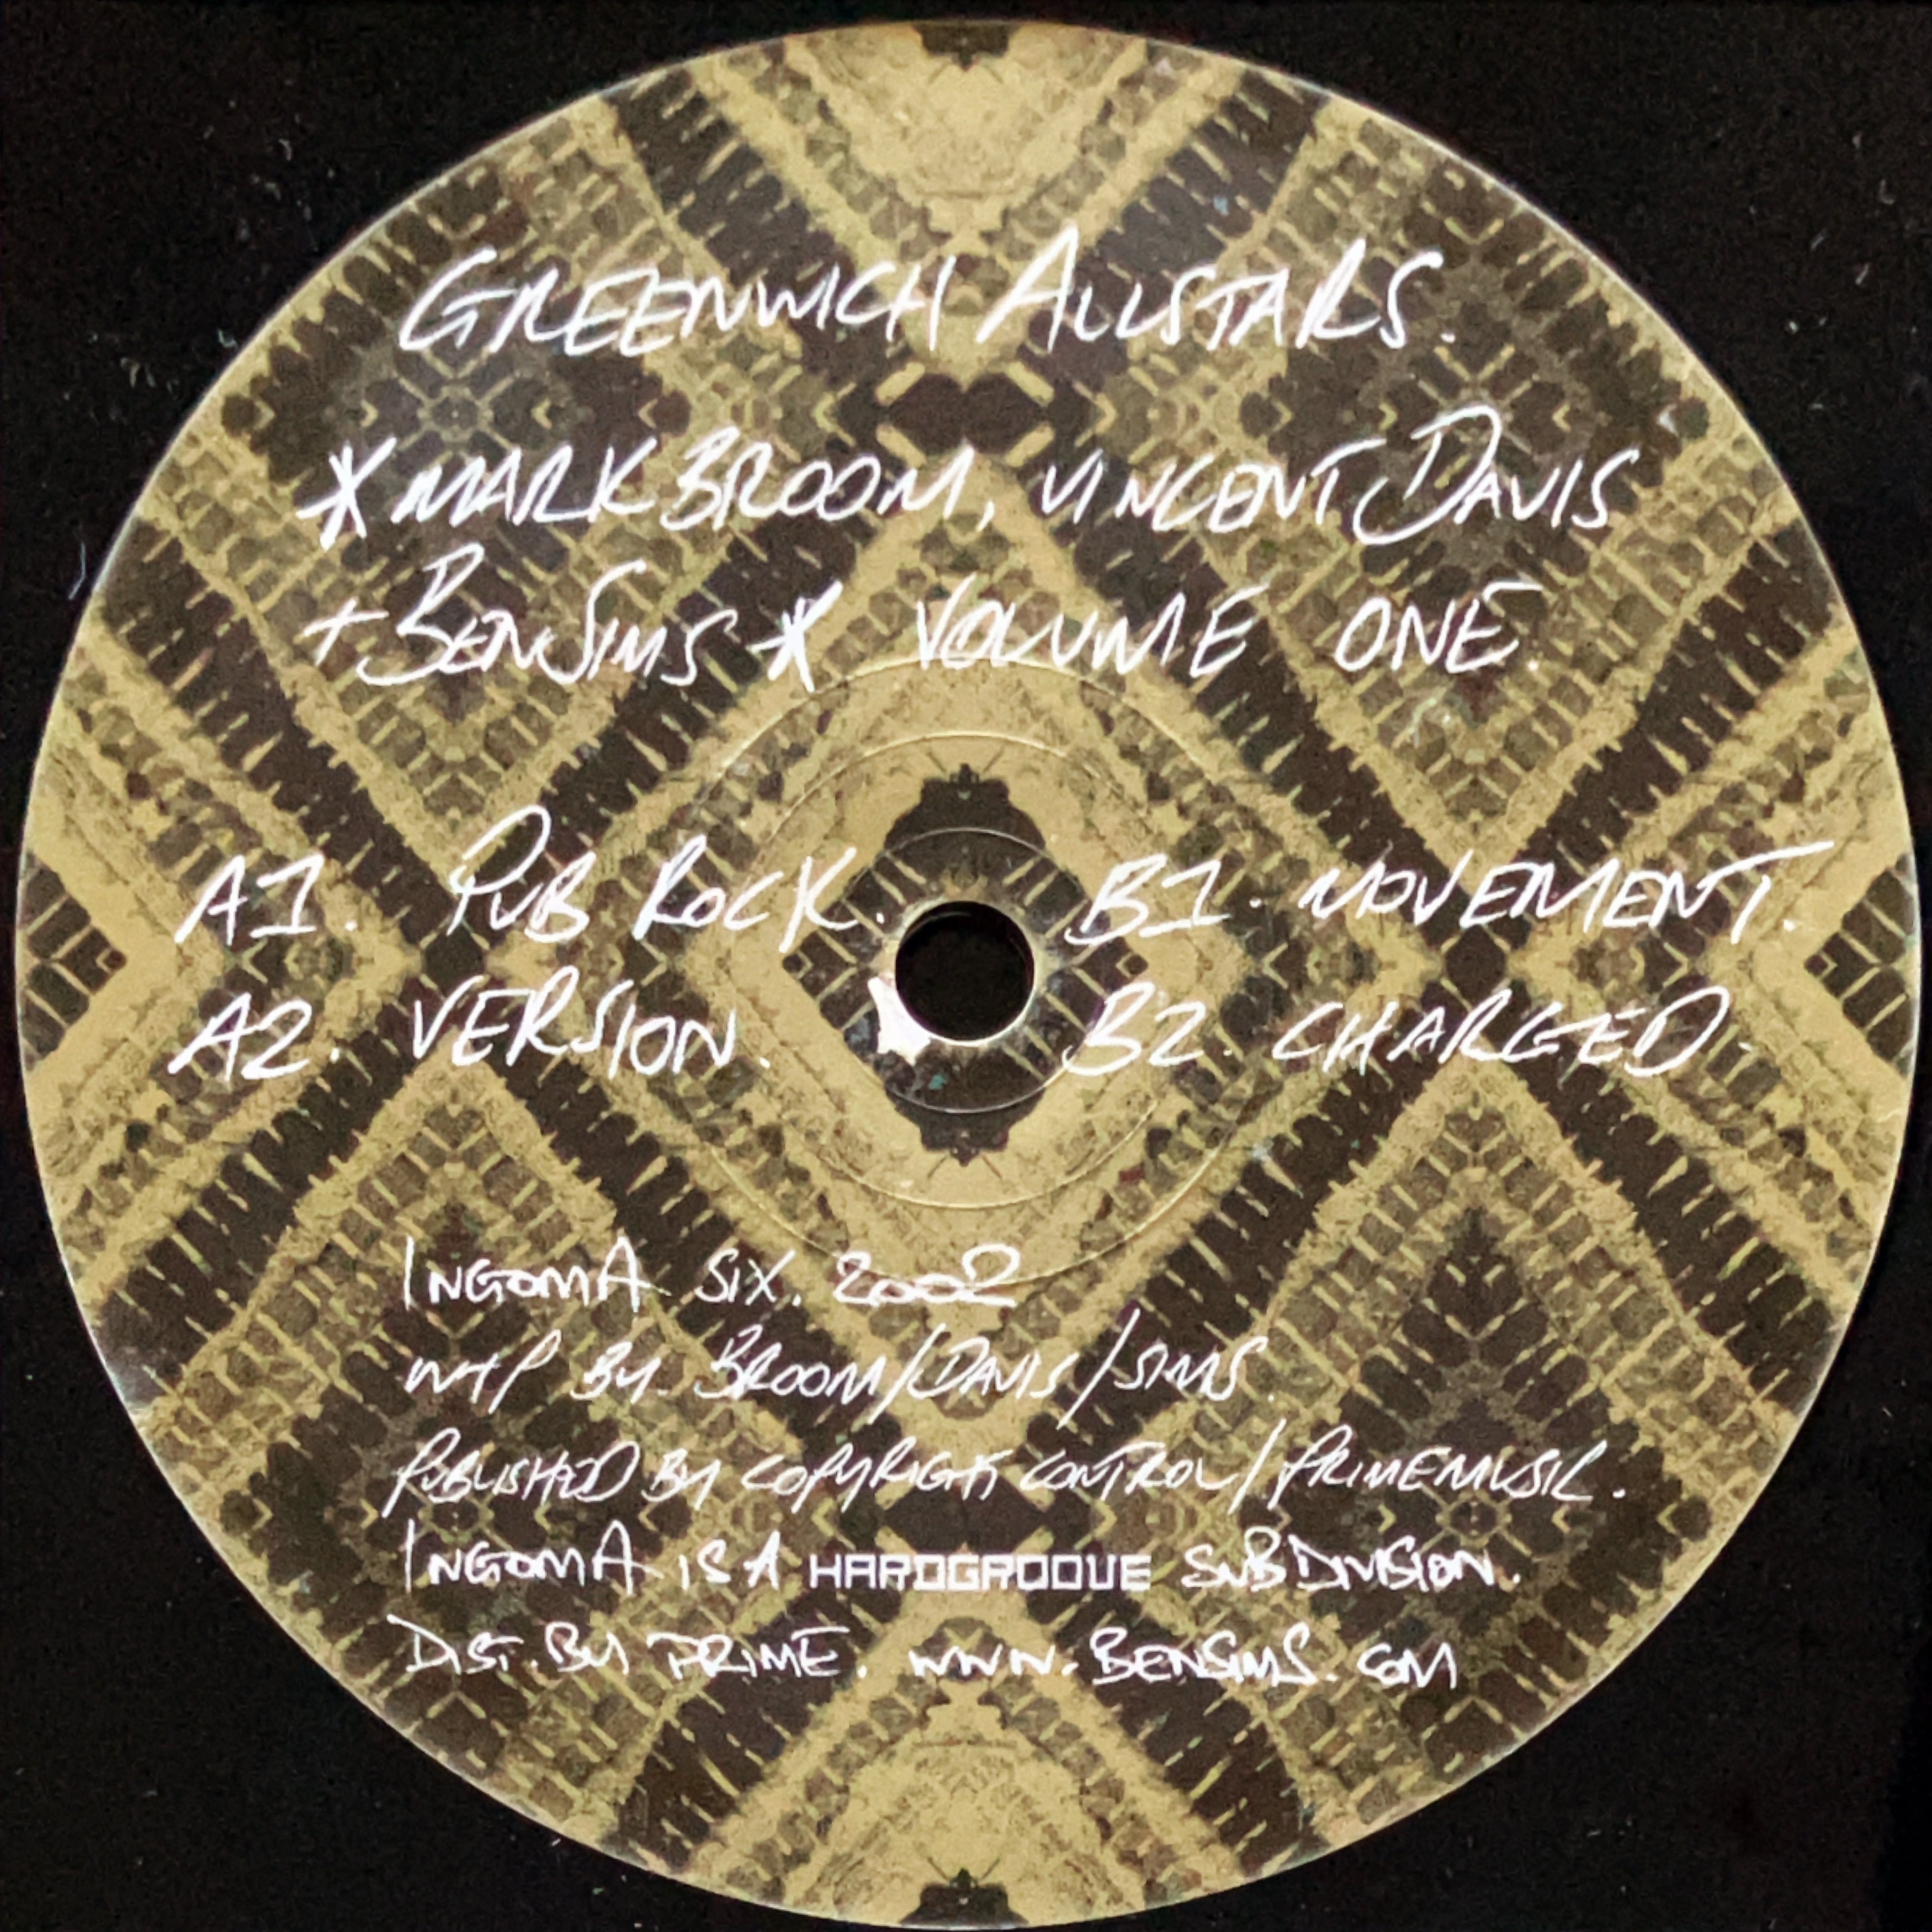 GREENWICH ALLSTARS.
* MARK BROOM, VINCENT DAVIS
+ BEN SIMS * VOLUME ONE
A1. PUB ROCK. B1. MOVEMENT.
A2. VERSION. B2. CHARGED.
INGOMA SIX. 2002
W+P BY. BROOM/DAVIS/SIMS.
PUBLISHED BY COPYRIGHT CONTROL/PRIMEMUSIC.
INGOMA IS A HARDGROOVE SUBDIVISION.
DIST. BY PRIME. WWW.BENSIMS.COM